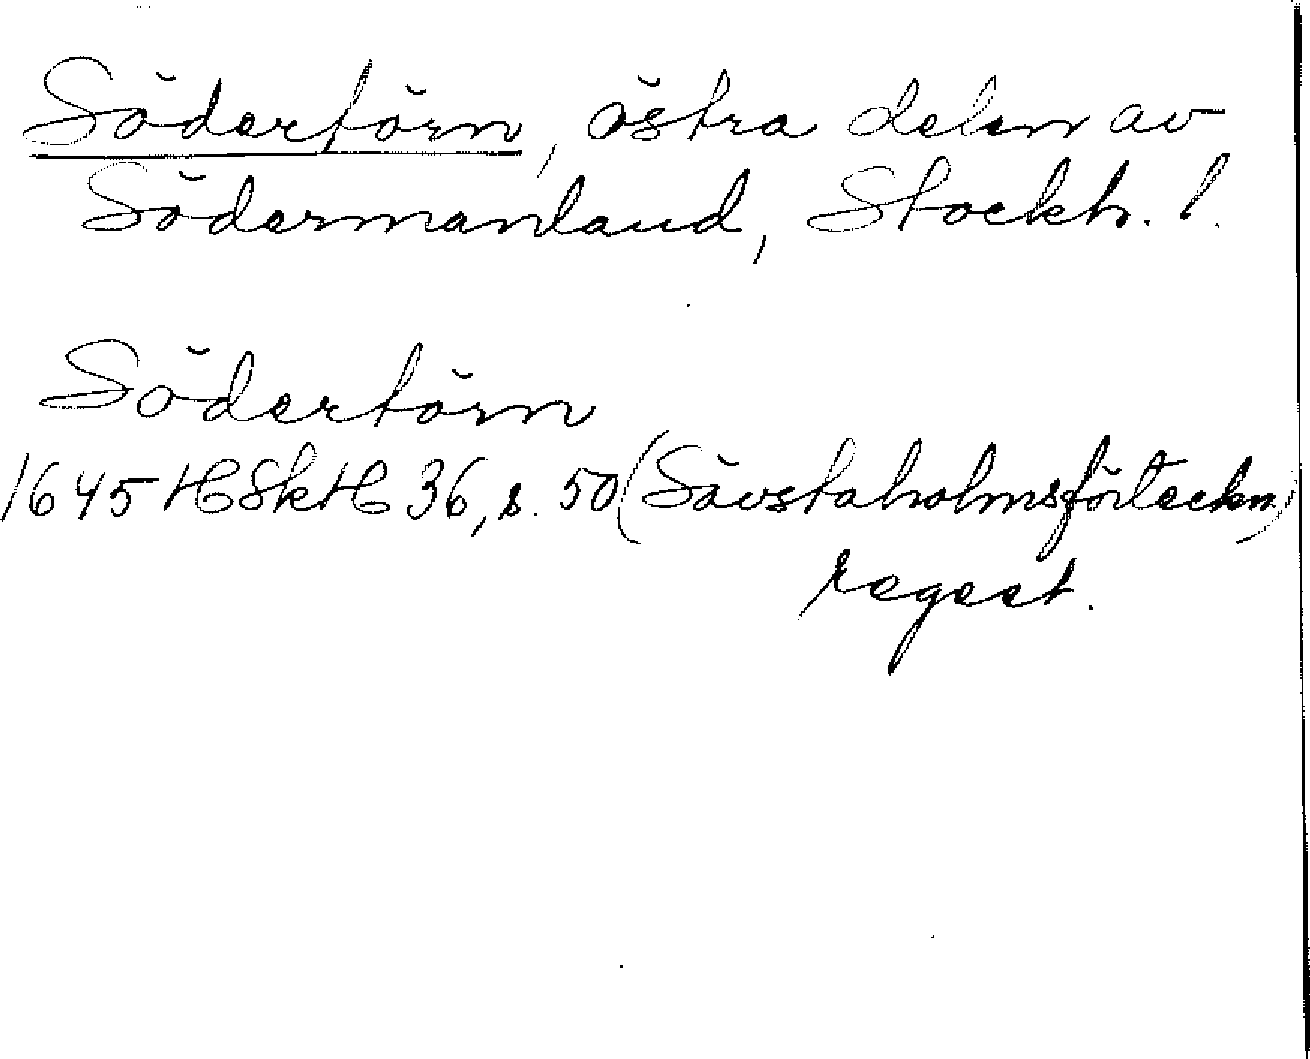 Södertörn, östra delen av
Södermanland, Stockh. l.
Södertörn
1645 HSkH 36, s. 50 (Sävstaholmsförteckn.)
regest.